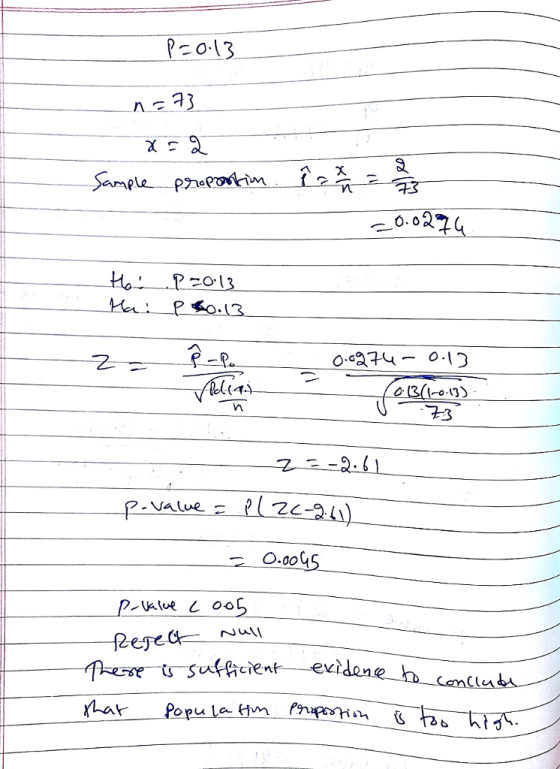 P=0.13
n = 73
x = 2
Sample proportion. p̂ = x/n = 2/73
= 0.0274
H₀: P=0.13
Ha: P<0.13
Z = (p̂-p₀)/√(p₀(1-p₀)/n) = (0.0274 - 0.13)/√(0.13(1-0.13)/73)
Z = -2.61
P-value = P(Z<-2.61)
= 0.0045
P-value < 005
Reject Null
There is sufficient evidence to conclude
that population proportion is too high.